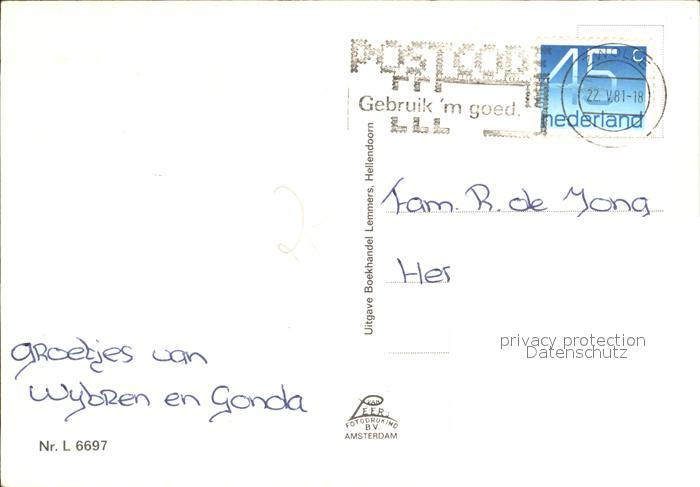 POSTCODE
Gebruik 'm goed.
45 C
22.V.81-18
nederland
Uitgave Boekhandel Lemmers, Hellendoorn
Fam. R. de Jong
Her
privacy protection
Datenschutz
groetjes van
Wybren en Gonda
VAN
LEER
FOTODRUKIND
B.V.
AMSTERDAM
Nr. L 6697